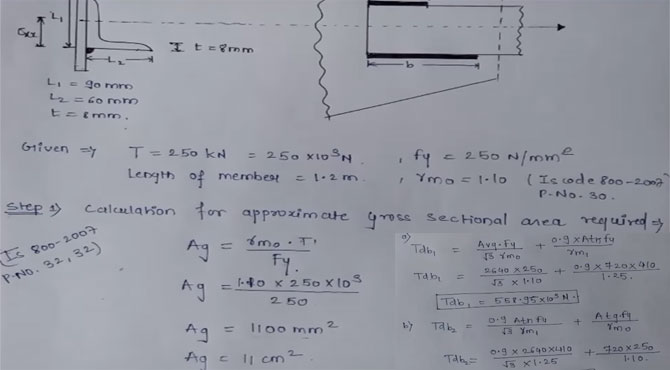 L₁
Cxx
L₂
t = 8mm
b
L₁ = 90 mm
L₂ = 60 mm
t = 8 mm.
Given ⇒ T = 250 kN = 250 ×10³N. , fy = 250 N/mm²
Length of member = 1.2 m. , γmo = 1.10 ( Is code 800-2007
P.No. 30.
Step 1) Calculation for approximate gross sectional area required ⇒
(Is 800-2007
P.No. 32, 32)
Ag = γmo . T / Fy.
Ag = 1.10 × 250 ×10³ / 250
Ag = 1100 mm²
Ag = 11 cm².
a) Tdb₁ = Avg.Fy / √3 γmo + 0.9 × Atn fu / γm₁
Tdb₁ = 2640 × 250 / √3 × 1.10 + 0.9 × 720 × 410 / 1.25.
Tdb₁ = 558.95 ×10³ N.
b) Tdb₂ = 0.9 Avn fu / √3 γm₁ + Atg.fy / γmo
Tdb₂ = 0.9 × 2640 × 410 / √3 × 1.25 + 720 × 250 / 1.10.